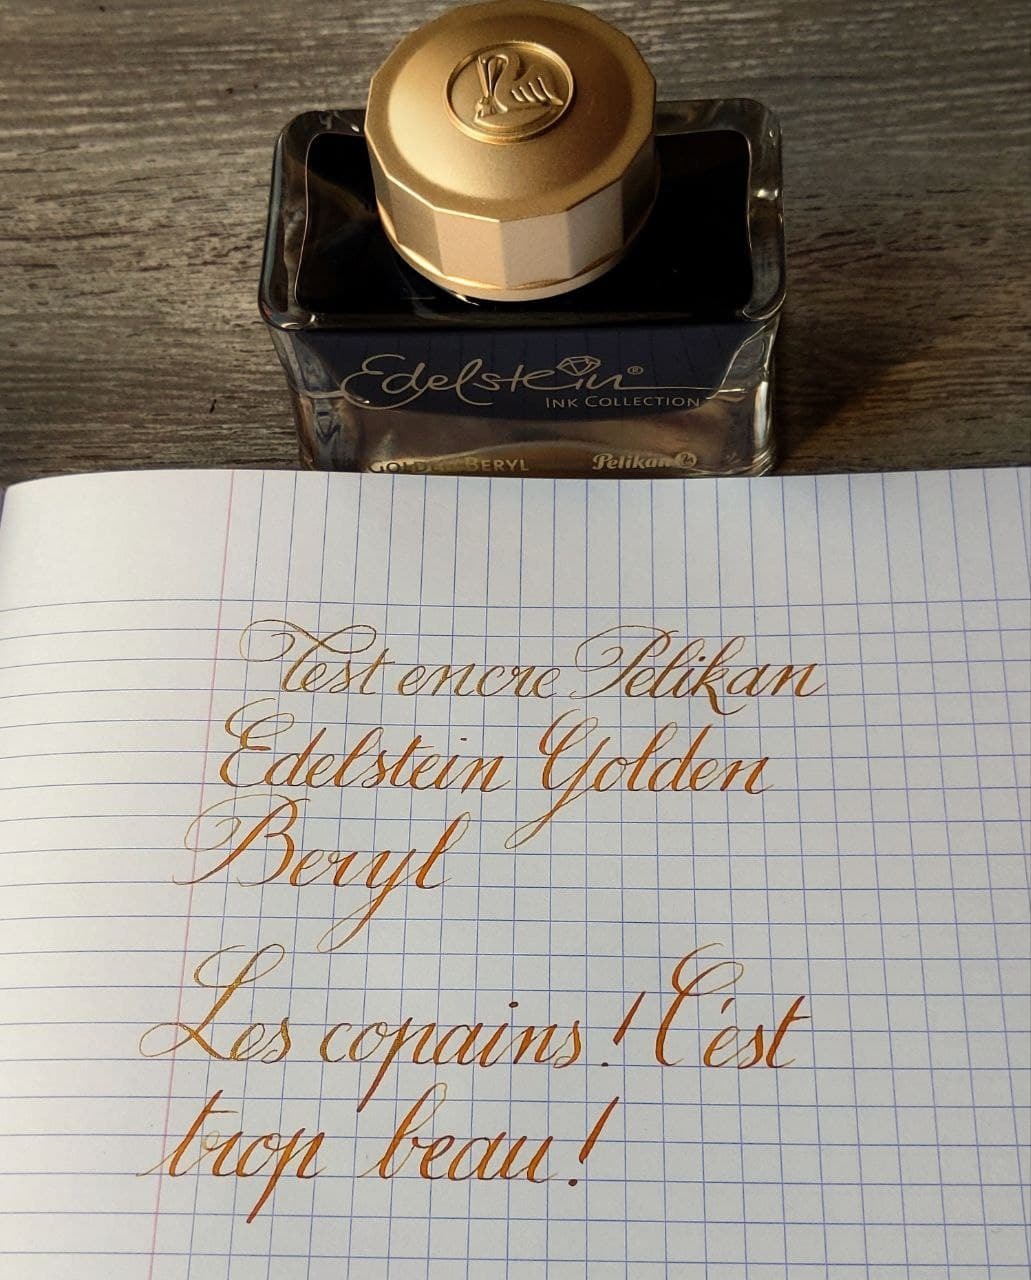 Edelstein®
INK COLLECTION
GOLDEN BERYL Pelikan
Test encre Pelikan
Edelstein Golden
Beryl
Les copains ! C'est
trop beau !